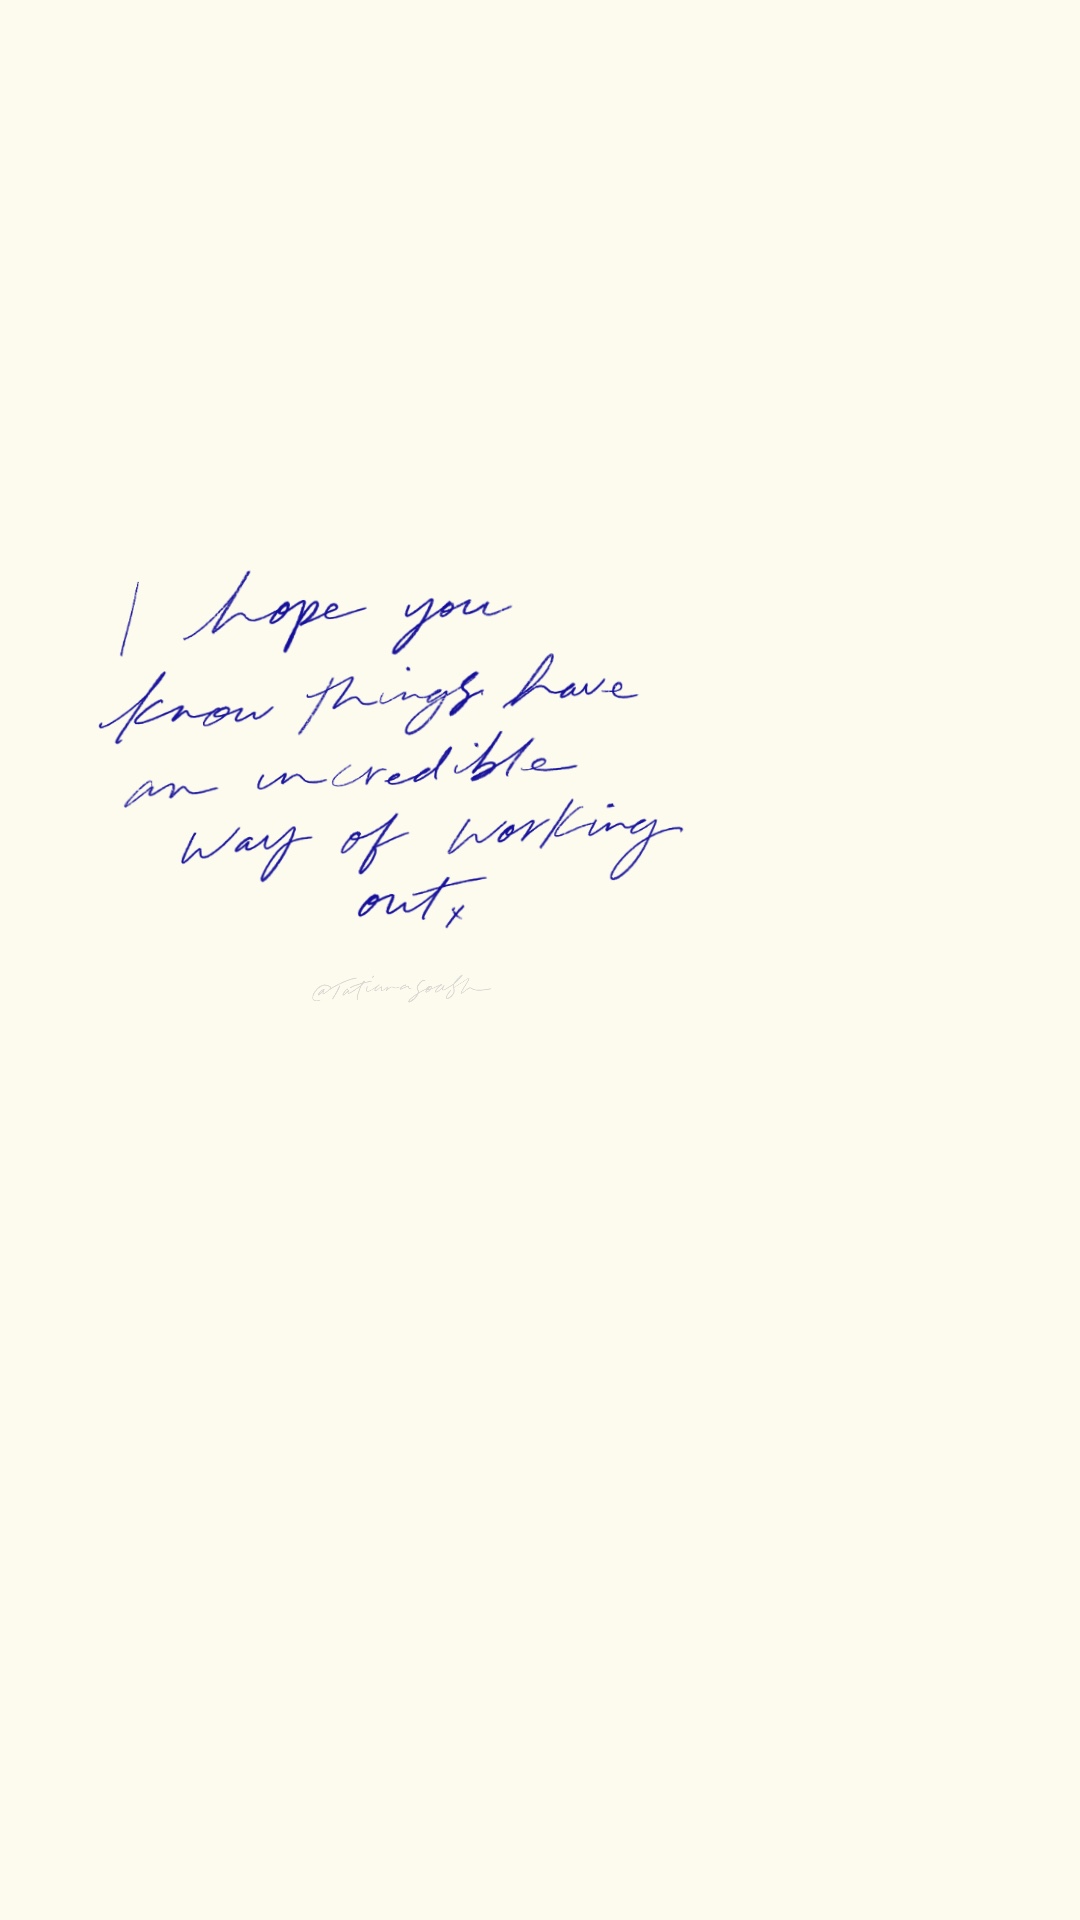 I hope you
know things have
an incredible
way of working
out x
@Tatianasoash